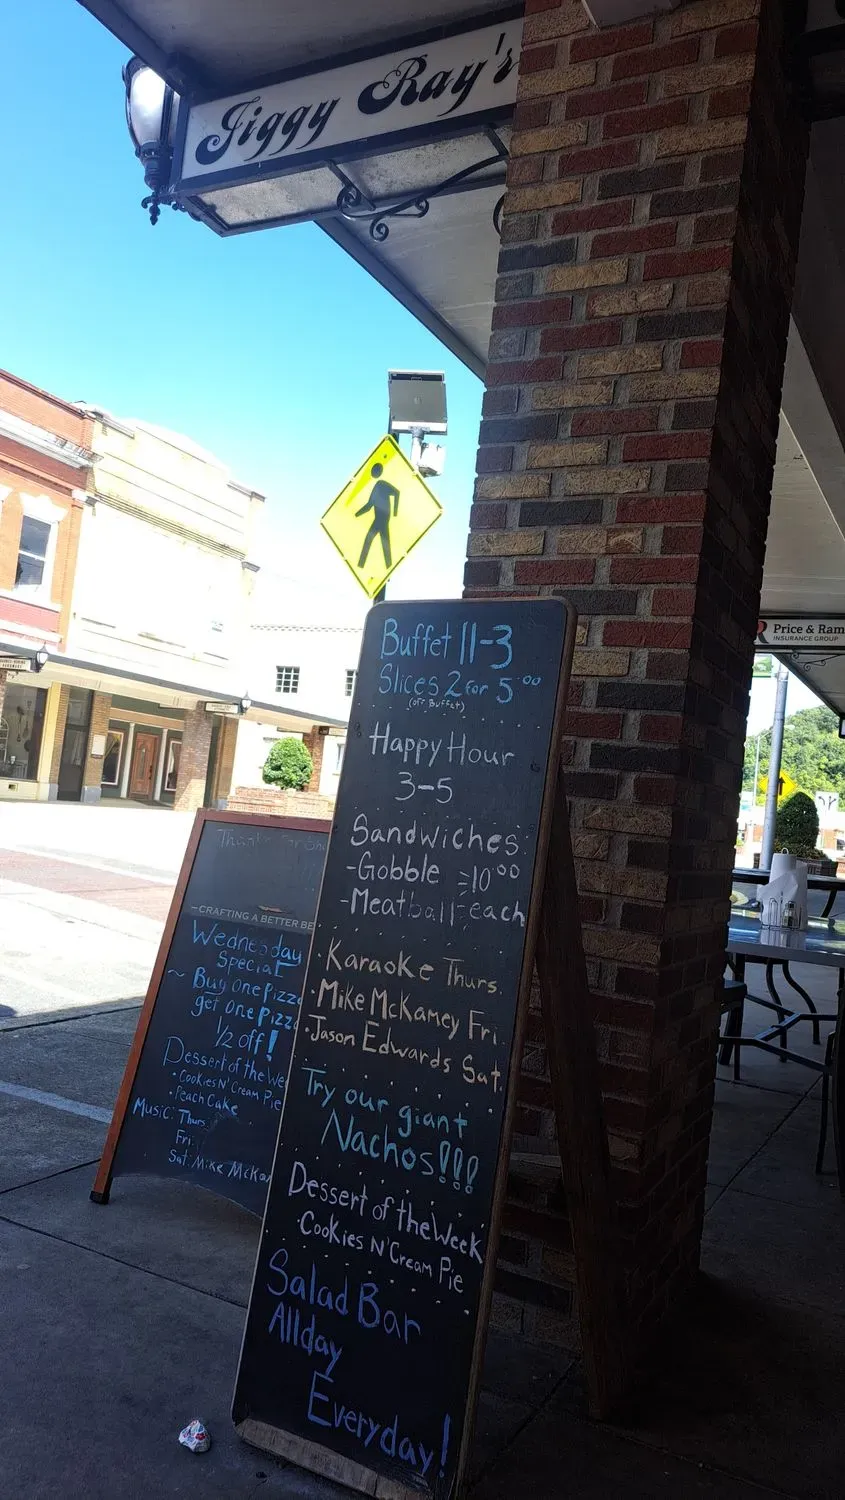 Jiggy Ray's
Buffet 11-3
Slices 2 for 5⁰⁰
(off Buffet)
Happy Hour
3-5
Sandwiches
-Gobble =10⁰⁰
-Meatball each
·Karaoke Thurs.
·Mike McKamey Fri.
·Jason Edwards Sat.
Try our giant
Nachos!!!
Dessert of the Week
·Cookies N' Cream Pie
Salad Bar
Allday
Everyday!
CRAFTING A BETTER BE
Wednesday
Special
~ Buy one pizza
get one pizz
1/2 off!
Dessert of the We
·Cookies N' Cream Pie
·Peach Cake
Music: Thurs:
Fri:
Sat: Mike McKa
Price & Ram
INSURANCE GROUP